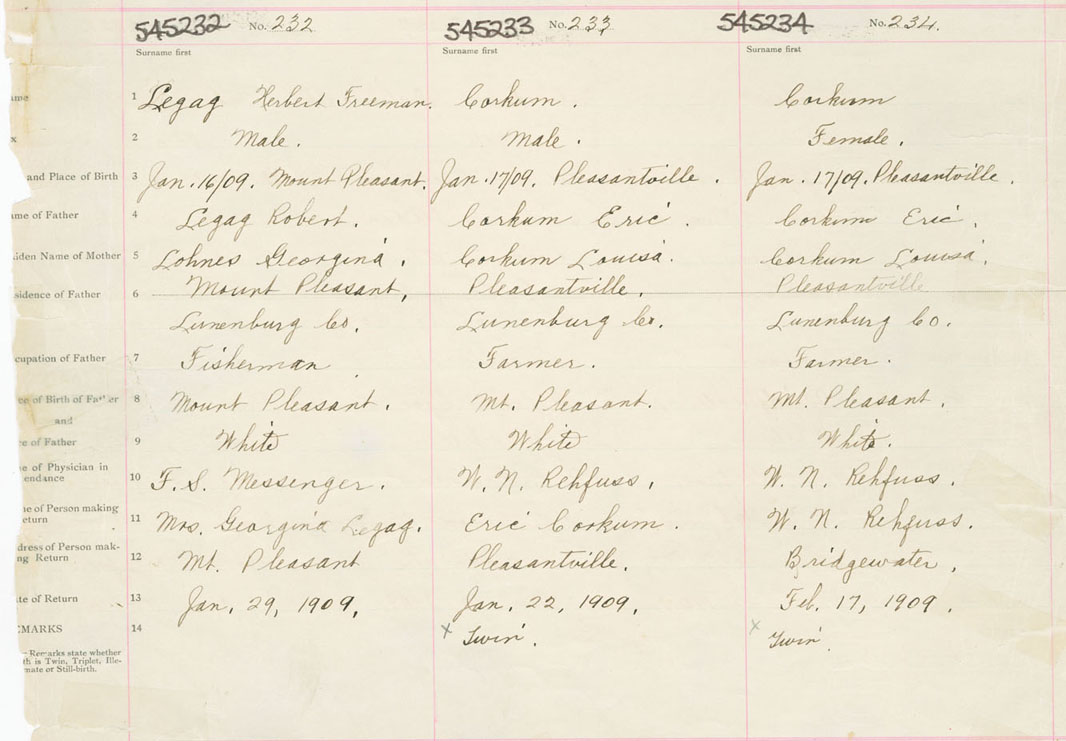 545232 No. 232 545233 No. 233 545234 No. 234.
Surname first Surname first Surname first
ame 1 Legag Herbert Freeman. Corkum. Corkum
x 2 Male. Male. Female.
and Place of Birth 3 Jan. 16/09. Mount Pleasant. Jan. 17/09. Pleasantville. Jan. 17/09. Pleasantville.
ame of Father 4 Legag Robert. Corkum Eric. Corkum Eric.
iden Name of Mother 5 Lohnes Georgina. Corkum Louisa. Corkum Louisa.
sidence of Father 6 Mount Pleasant, Pleasantville, Pleasantville
Lunenburg Co. Lunenburg Co. Lunenburg Co.
cupation of Father 7 Fisherman Farmer. Farmer.
ce of Birth of Father 8 Mount Pleasant. Mt. Pleasant. Mt. Pleasant.
and
ce of Father 9 White White White.
e of Physician in
endance 10 F. S. Messenger. W. N. Rehfuss. W. N. Rehfuss.
ne of Person making
eturn 11 Mrs. Georgina Legag. Eric Corkum. W. N. Rehfuss.
dress of Person mak-
ng Return 12 Mt. Pleasant Pleasantville. Bridgewater.
te of Return 13 Jan. 29, 1909. Jan. 22, 1909. Feb. 17, 1909.
EMARKS 14 x Twin. x Twin.
Remarks state whether
th is Twin, Triplet, Ille-
mate or Still-birth.